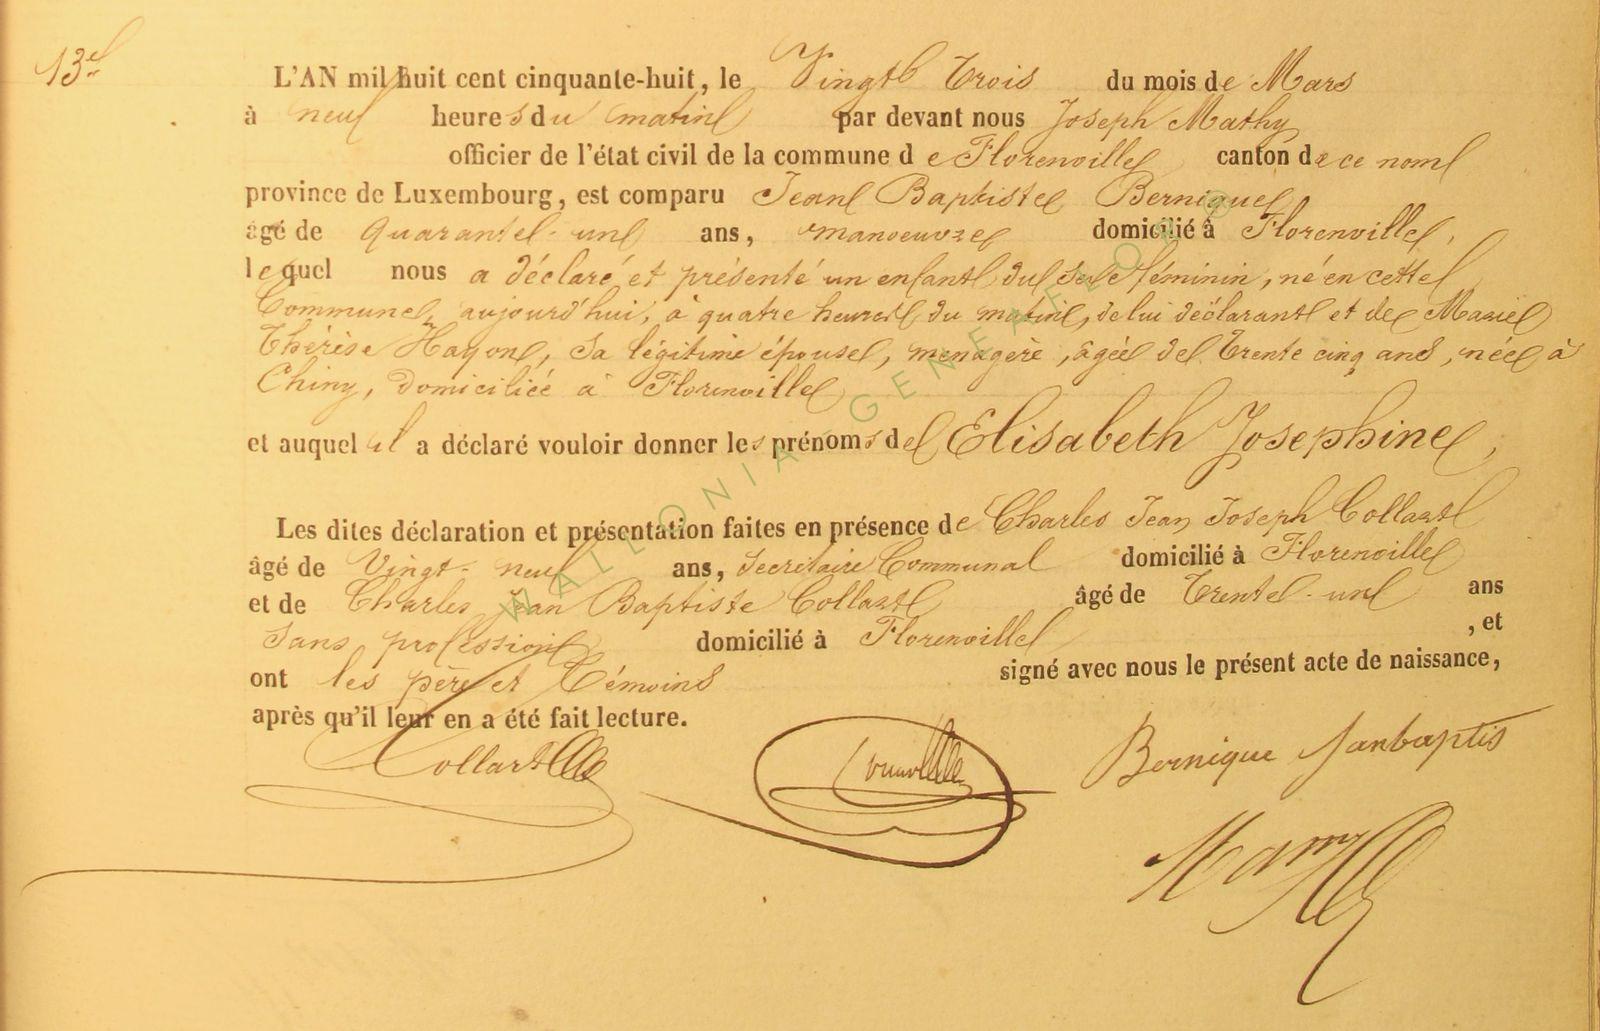 13e
L'AN mil huit cent cinquante-huit, le Vingt Trois du mois de Mars
à neuf heures du matin par devant nous Joseph Mathy
officier de l'état civil de la commune de Florenville canton de ce nom
province de Luxembourg, est comparu Jean Baptiste Bernique
âgé de quarante-un ans, manoeuvre domicilié à Florenville,
lequel nous a déclaré et présenté un enfant du sexe féminin, né en cette
Commune, aujourd'hui, à quatre heures du matin, de lui déclarant et de Marie
Thérèse Hayon, sa légitime épouse, menagère, âgée de Trente cinq ans, née à
Chiny, domiciliée à Florenville
et auquel il a déclaré vouloir donner les prénoms de Elisabeth Josephine,
Les dites déclaration et présentation faites en présence de Charles Jean Joseph Collart
âgé de Vingt-neuf ans, Secrétaire Communal domicilié à Florenville
et de Charles Jean Baptiste Collart âgé de Trente-un ans
sans profession domicilié à Florenville , et
ont les père et Témoins signé avec nous le présent acte de naissance,
après qu'il leur en a été fait lecture.
Collart Bernique Janbaptis
WALLONIA GENEAFLO